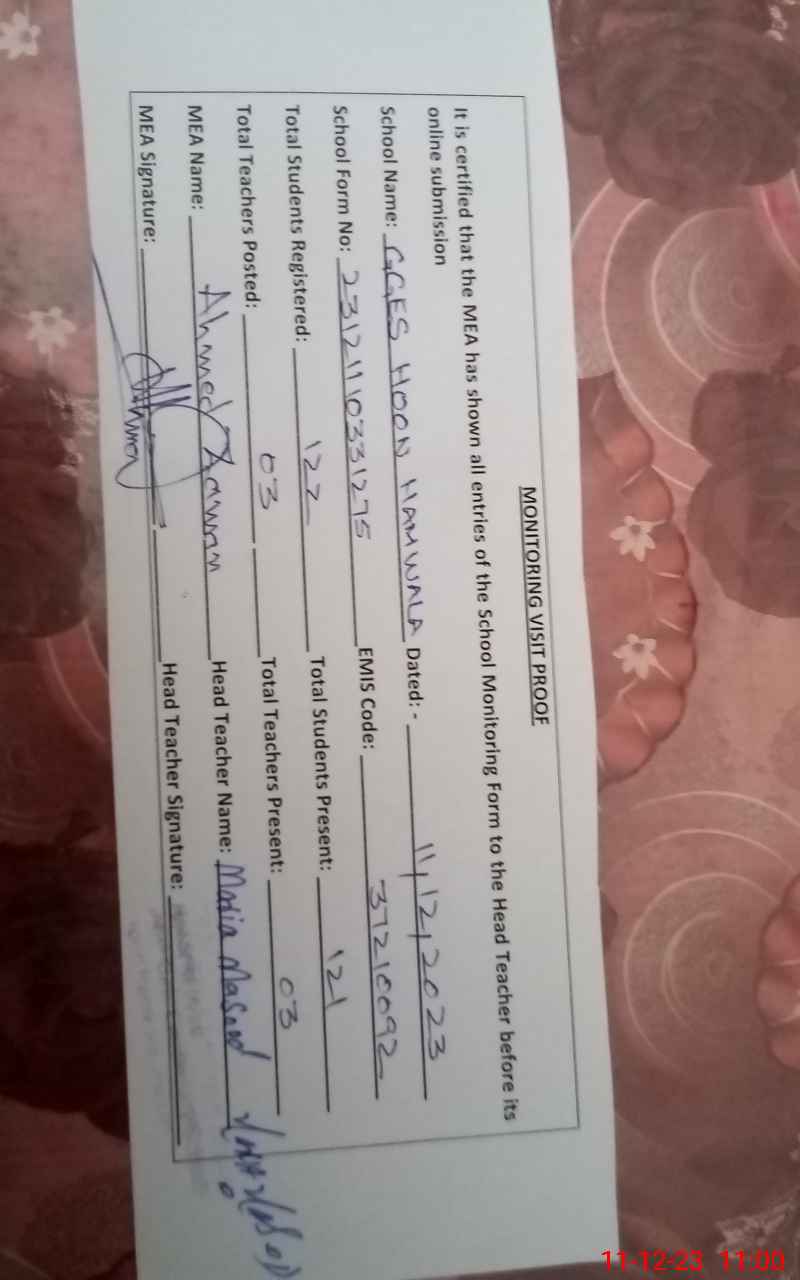 MONITORING VISIT PROOF
It is certified that the MEA has shown all entries of the School Monitoring Form to the Head Teacher before its
online submission
School Name: GGES HOON HAMWALA Dated: - 11,12,2023
School Form No: 23121110331275 EMIS Code: 37210092
Total Students Registered: 122 Total Students Present: 121
Total Teachers Posted: 03 Total Teachers Present: 03
MEA Name: Ahmed Hawan Head Teacher Name: Madia Masood
MEA Signature: Head Teacher Signature:
11-12-23 11:00